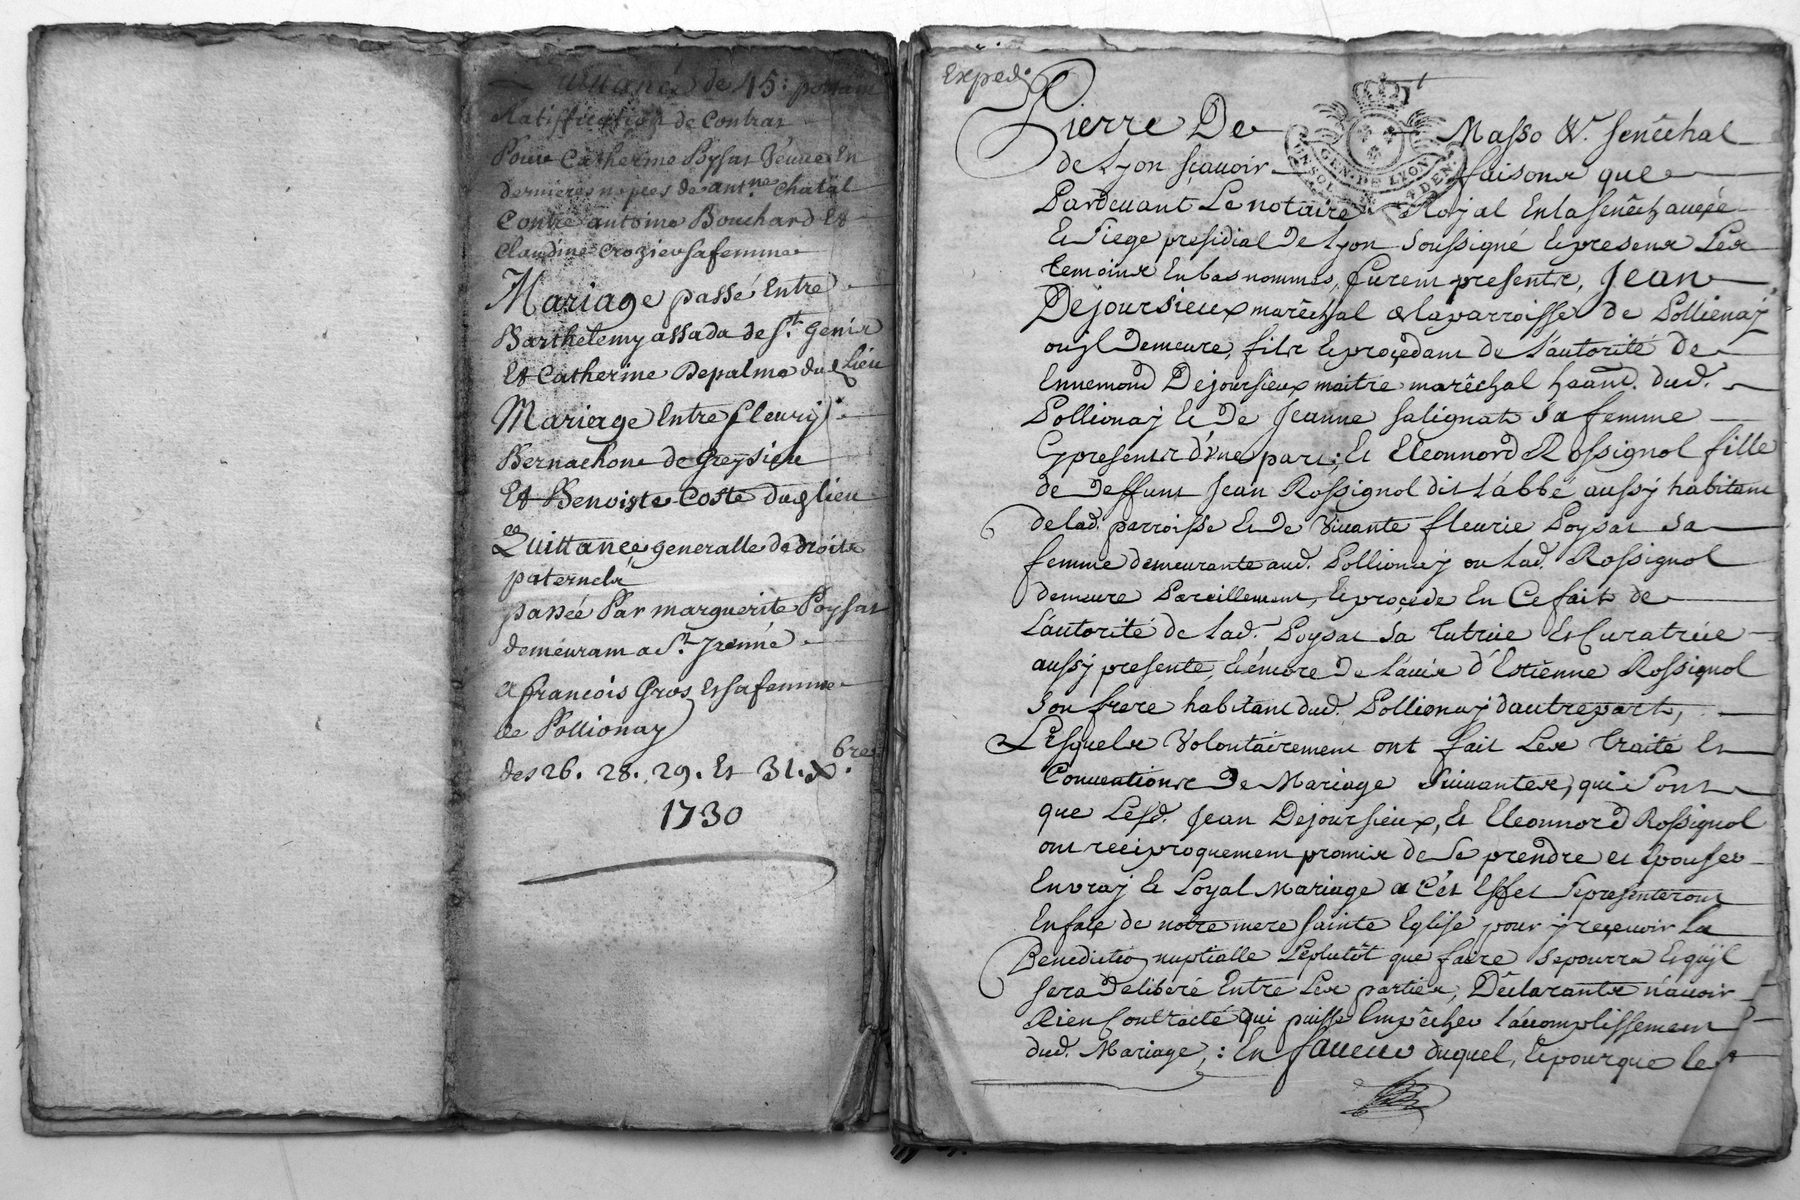 Quittance de 45: portant
Ratiffication de Contrat
Pour Catherine Poysat Veuve En
dernieres nopces de ant.ne Chatal
Contre antoine Bouchard Et
Claudine Crozier sa femme
Mariage passé Entre
Barthelemy assada de S.t Genis
Et Catherine Depalme dud lieu
Mariage Entre fleury
Bernachon de Greysieu
Et Benoiste Coste dud lieu
Quittance generalle de droits
paternels
passée Par marguerite Poysat
demeurant a S.t Irenné
a francois Gros Et sa femme
de Pollionay
des 26. 28. 29. Et 31. Xbre.
1730
Exped.
Pierre De Masso &r. senêchal
de Lyon sçavoir faisons que
GEN. DE LYON
Pardevant Le notaire Royal En la senêchaucée
& siege presidial De Lyon soussigné & presens Les
temoins En bas nommés, furent presents, Jean
Dejoursieux marêchal de la parroisse de Pollionay
ou jl Demeure, fils & proçedant de L'autorité de
Ennemond Dejoursieux maitre marêchal habitant. dud.
Pollionay & De Jeanne salignat sa femme
Cy presents d'vne part; Et Eleonnord Rossignol fille
de Deffunt Jean Rossignol dit L'abbé aussy habitant
de lad. parroisse & De Vivante fleurie Poysat sa
femme demeurante aud. Pollionay ou Lad. Rossignol
demeure Pareillement, & proçede En Ce fait de
L'autorité de Lad. Poysat sa tutrice Et Curatrice
aussy presente, & encore De L'avis d'Estienne Rossignol
son frere habitant dud. Pollionay d'autre part,
Lesquels Volontairement ont fait Les traité Et
Conventions De Mariage suivantes, qui sont
que Lesd. Jean Dejoursieux, Et Eleonnord Rossignol
ont reciproquement promis de se prendre et Epouser
En vray & Loyal Mariage a Cet Effet se presenteront
En face de notre mere sainte Eglise pour y reçevoir La
Benediction nuptialle Le plutôt que faire se pourra & qu'jl
sera Deliberé Entre Les parties, Déclarants n'avoir
Rien Contracté qui puisse Empêcher L'accomplissement
dud. Mariage,: En faveur duquel, & pour que les